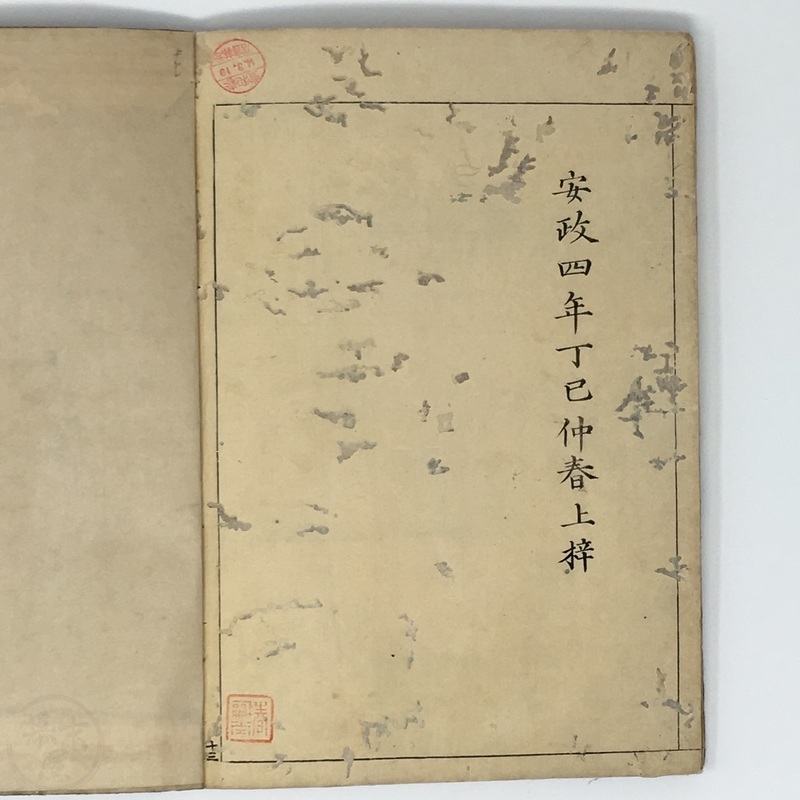 安政四年丁巳仲春上梓
十三